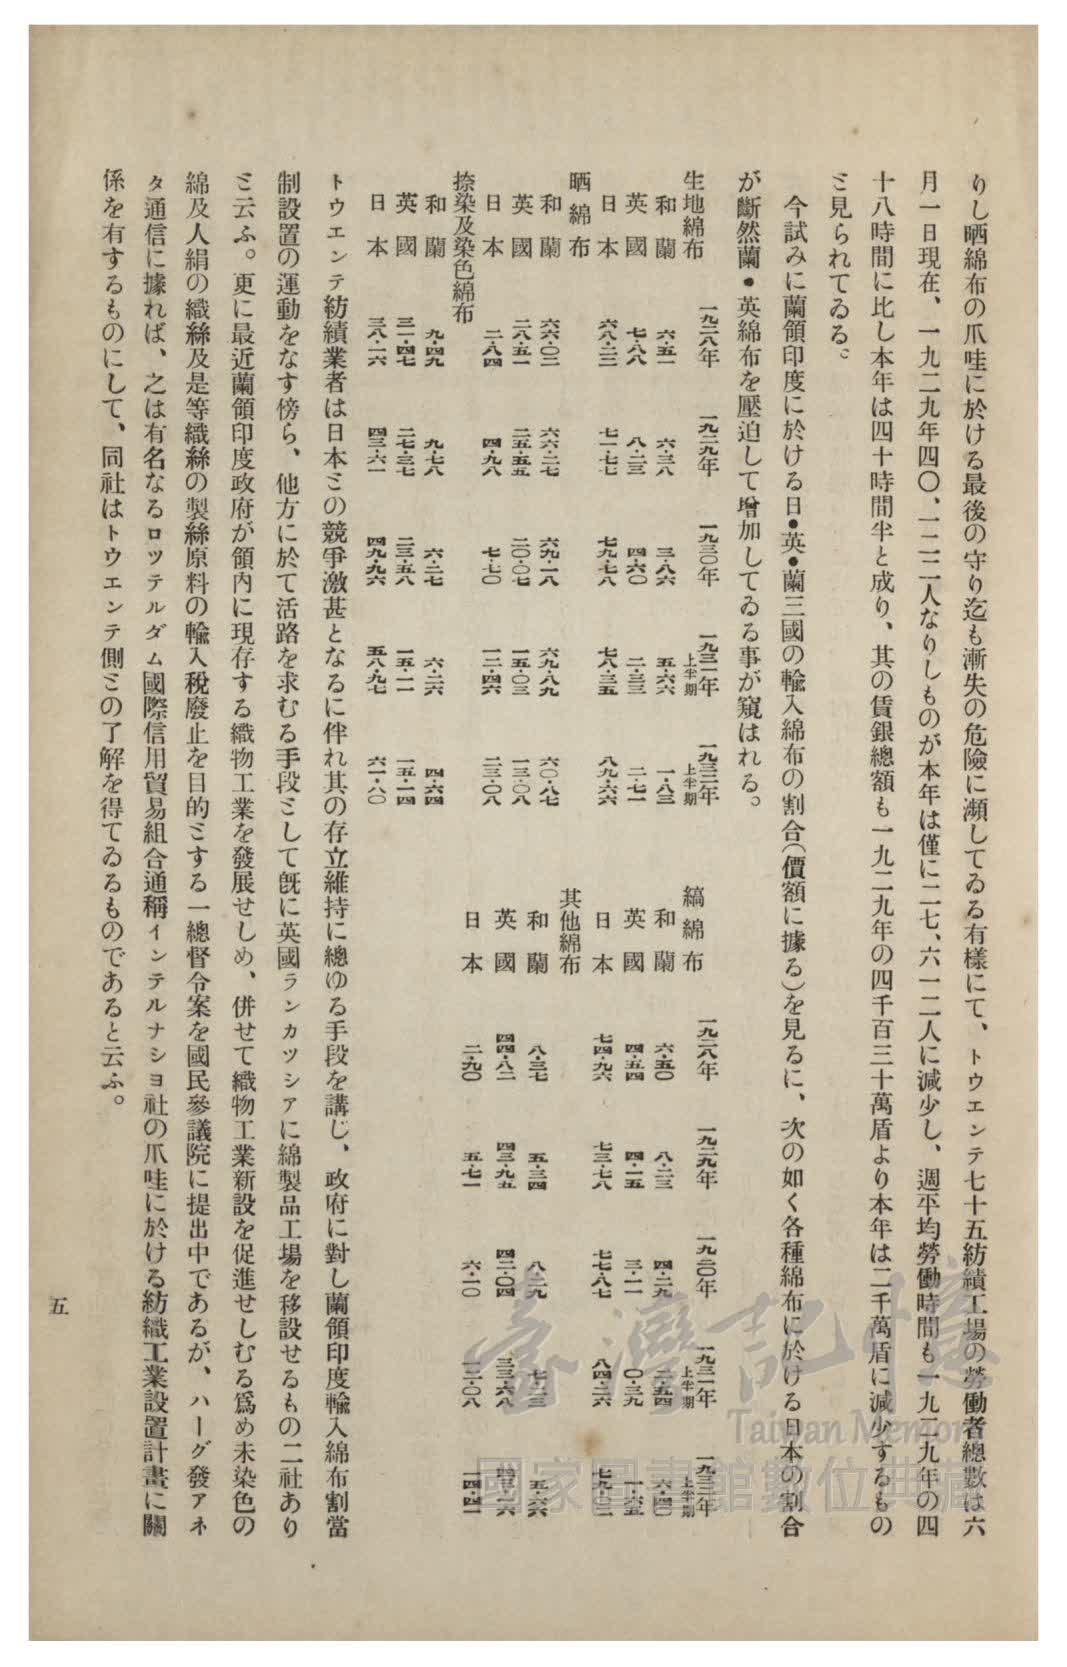 りし晒綿布の爪哇に於ける最後の守り迄も漸失の危險に瀕してゐる有樣にて、トウエンテ七十五紡績工場の勞働者總數は六
月一日現在、一九二九年四〇、一二二人なりしものが本年は僅に二七、六一二人に減少し、週平均勞働時間も一九二九年の四
十八時間に比し本年は四十時間半と成り、其の賃銀總額も一九二九年の四千百三十萬盾より本年は二千萬盾に減少するもの
ミ見られてゐる。
今試みに蘭領印度に於ける日・英・蘭三國の輸入綿布の割合(價額に據る)を見るに、次の如く各種綿布に於ける日本の割合
が斷然蘭・英綿布を壓迫して增加してゐる事が窺はれる。
一九二八年 一九二九年 一九三〇年 一九三一年上半期 一九三二年上半期
生地綿布
和蘭 六・五一 六・三八 三・八六 五・六六 一・八三
英國 七・八八 八・二三 四・六〇 二・三三 二・七一
日本 六八・二二 七一・七七 七九・七八 七八・三五 八九・六六
晒綿布
和蘭 六六・〇二 六六・二七 六九・一八 六九・八九 六〇・八七
英國 二八・五一 二五・五五 二〇・〇七 一五・〇三 一三・〇八
日本 二・八四 四・九八 七・七〇 一二・四六 二三・〇八
捺染及染色綿布
和蘭 九・四九 九・七八 六・二七 六・二六 四・六四
英國 三一・四七 二七・三七 二三・五八 一五・一一 一五・一四
日本 三八・二六 四三・六一 四九・九六 五八・九七 六一・八〇
一九二八年 一九二九年 一九三〇年 一九三一年上半期 一九三二年上半期
縞綿布
和蘭 六・五〇 八・二三 四・二九 二・五四
英國 四・五四 四・一五 三・一一 〇・三九
日本 七四・九六 七三・七八 七七・八七 八四・二六
其他綿布
和蘭 八・三七 五・三四 八・二九 七・二三 五・六六
英國 四四・八二 四三・九五 四二・〇四 三三・六八
日本 二・九〇 五・七一 六・一〇 一二・〇八 一四・四一
トウエンテ紡績業者は日本ミの競爭激甚となるに伴れ其の存立維持に總ゆる手段を講じ、政府に對し蘭領印度輸入綿布割當
制設置の運動をなす傍ら、他方に於て活路を求むる手段ミして旣に英國ランカツシアに綿製品工場を移設せるもの二社あり
ミ云ふ。更に最近蘭領印度政府が領內に現存する織物工業を發展せしめ、併せて織物工業新設を促進せしむる爲め未染色の
綿及人絹の織絲及是等織絲の製絲原料の輸入稅廢止を目的ミする一總督令案を國民參議院に提出中であるが、ハーグ發アネ
タ通信に據れば、之は有名なるロツテルダム國際信用貿易組合通稱インテルナシヨ社の爪哇に於ける紡織工業設置計畫に關
係を有するものにして、同社はトウエンテ側ミの了解を得てゐるものであると云ふ。
五
臺灣記憶
Taiwan Memory
國家圖書館數位典藏